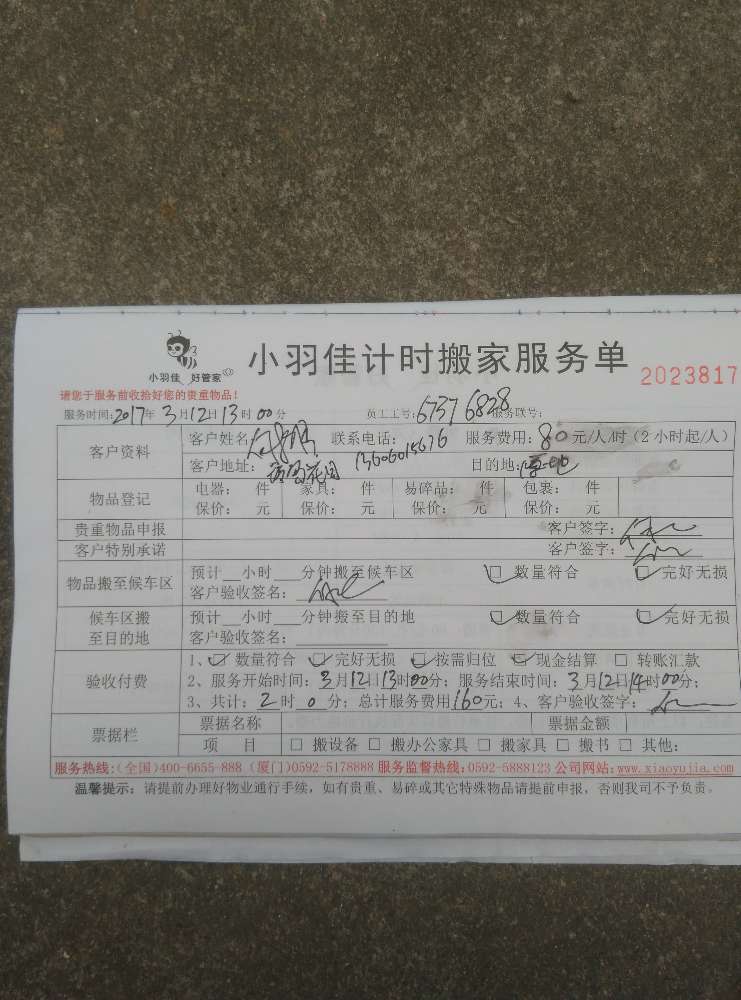 小羽佳 好管家
小羽佳计时搬家服务单
2023817
请您于服务前收拾好您的贵重物品!
服务时间:2017年3月12日13时00分 员工工号:6737 6828 服务联号:
客户资料
客户姓名: 联系电话: 13606015676 服务费用:80元/人/时(2小时起/人)
客户地址: 花园 目的地:
物品登记
电器: 件 家具: 件 易碎品: 件 包裹: 件
保价: 元 保价: 元 保价: 元 保价: 元
贵重物品申报 客户签字:
客户特别承诺 客户签字:
物品搬至候车区
预计__小时___分钟搬至候车区 数量符合 完好无损
客户验收签名:
候车区搬至目的地
预计__小时___分钟搬至目的地 数量符合 完好无损
客户验收签名:
验收付费
1、数量符合 完好无损 按需归位 现金结算 □ 转账汇款
2、服务开始时间:3月12日13时00分; 服务结束时间:3月12日14时00分;
3、共计:2时0分; 总计服务费用160元; 4、客户验收签字:
票据栏
票据名称 票据金额
项 目 □ 搬设备 □ 搬办公家具 □ 搬家具 □ 搬书 □ 其他:
服务热线:(全国)400-6655-888 (厦门)0592-5178888 服务监督热线:0592-5888123 公司网站:www.xiaoyujia.com
温馨提示: 请提前办理好物业通行手续, 如有贵重、易碎或其它特殊物品请提前申报, 否则我司不予负责。